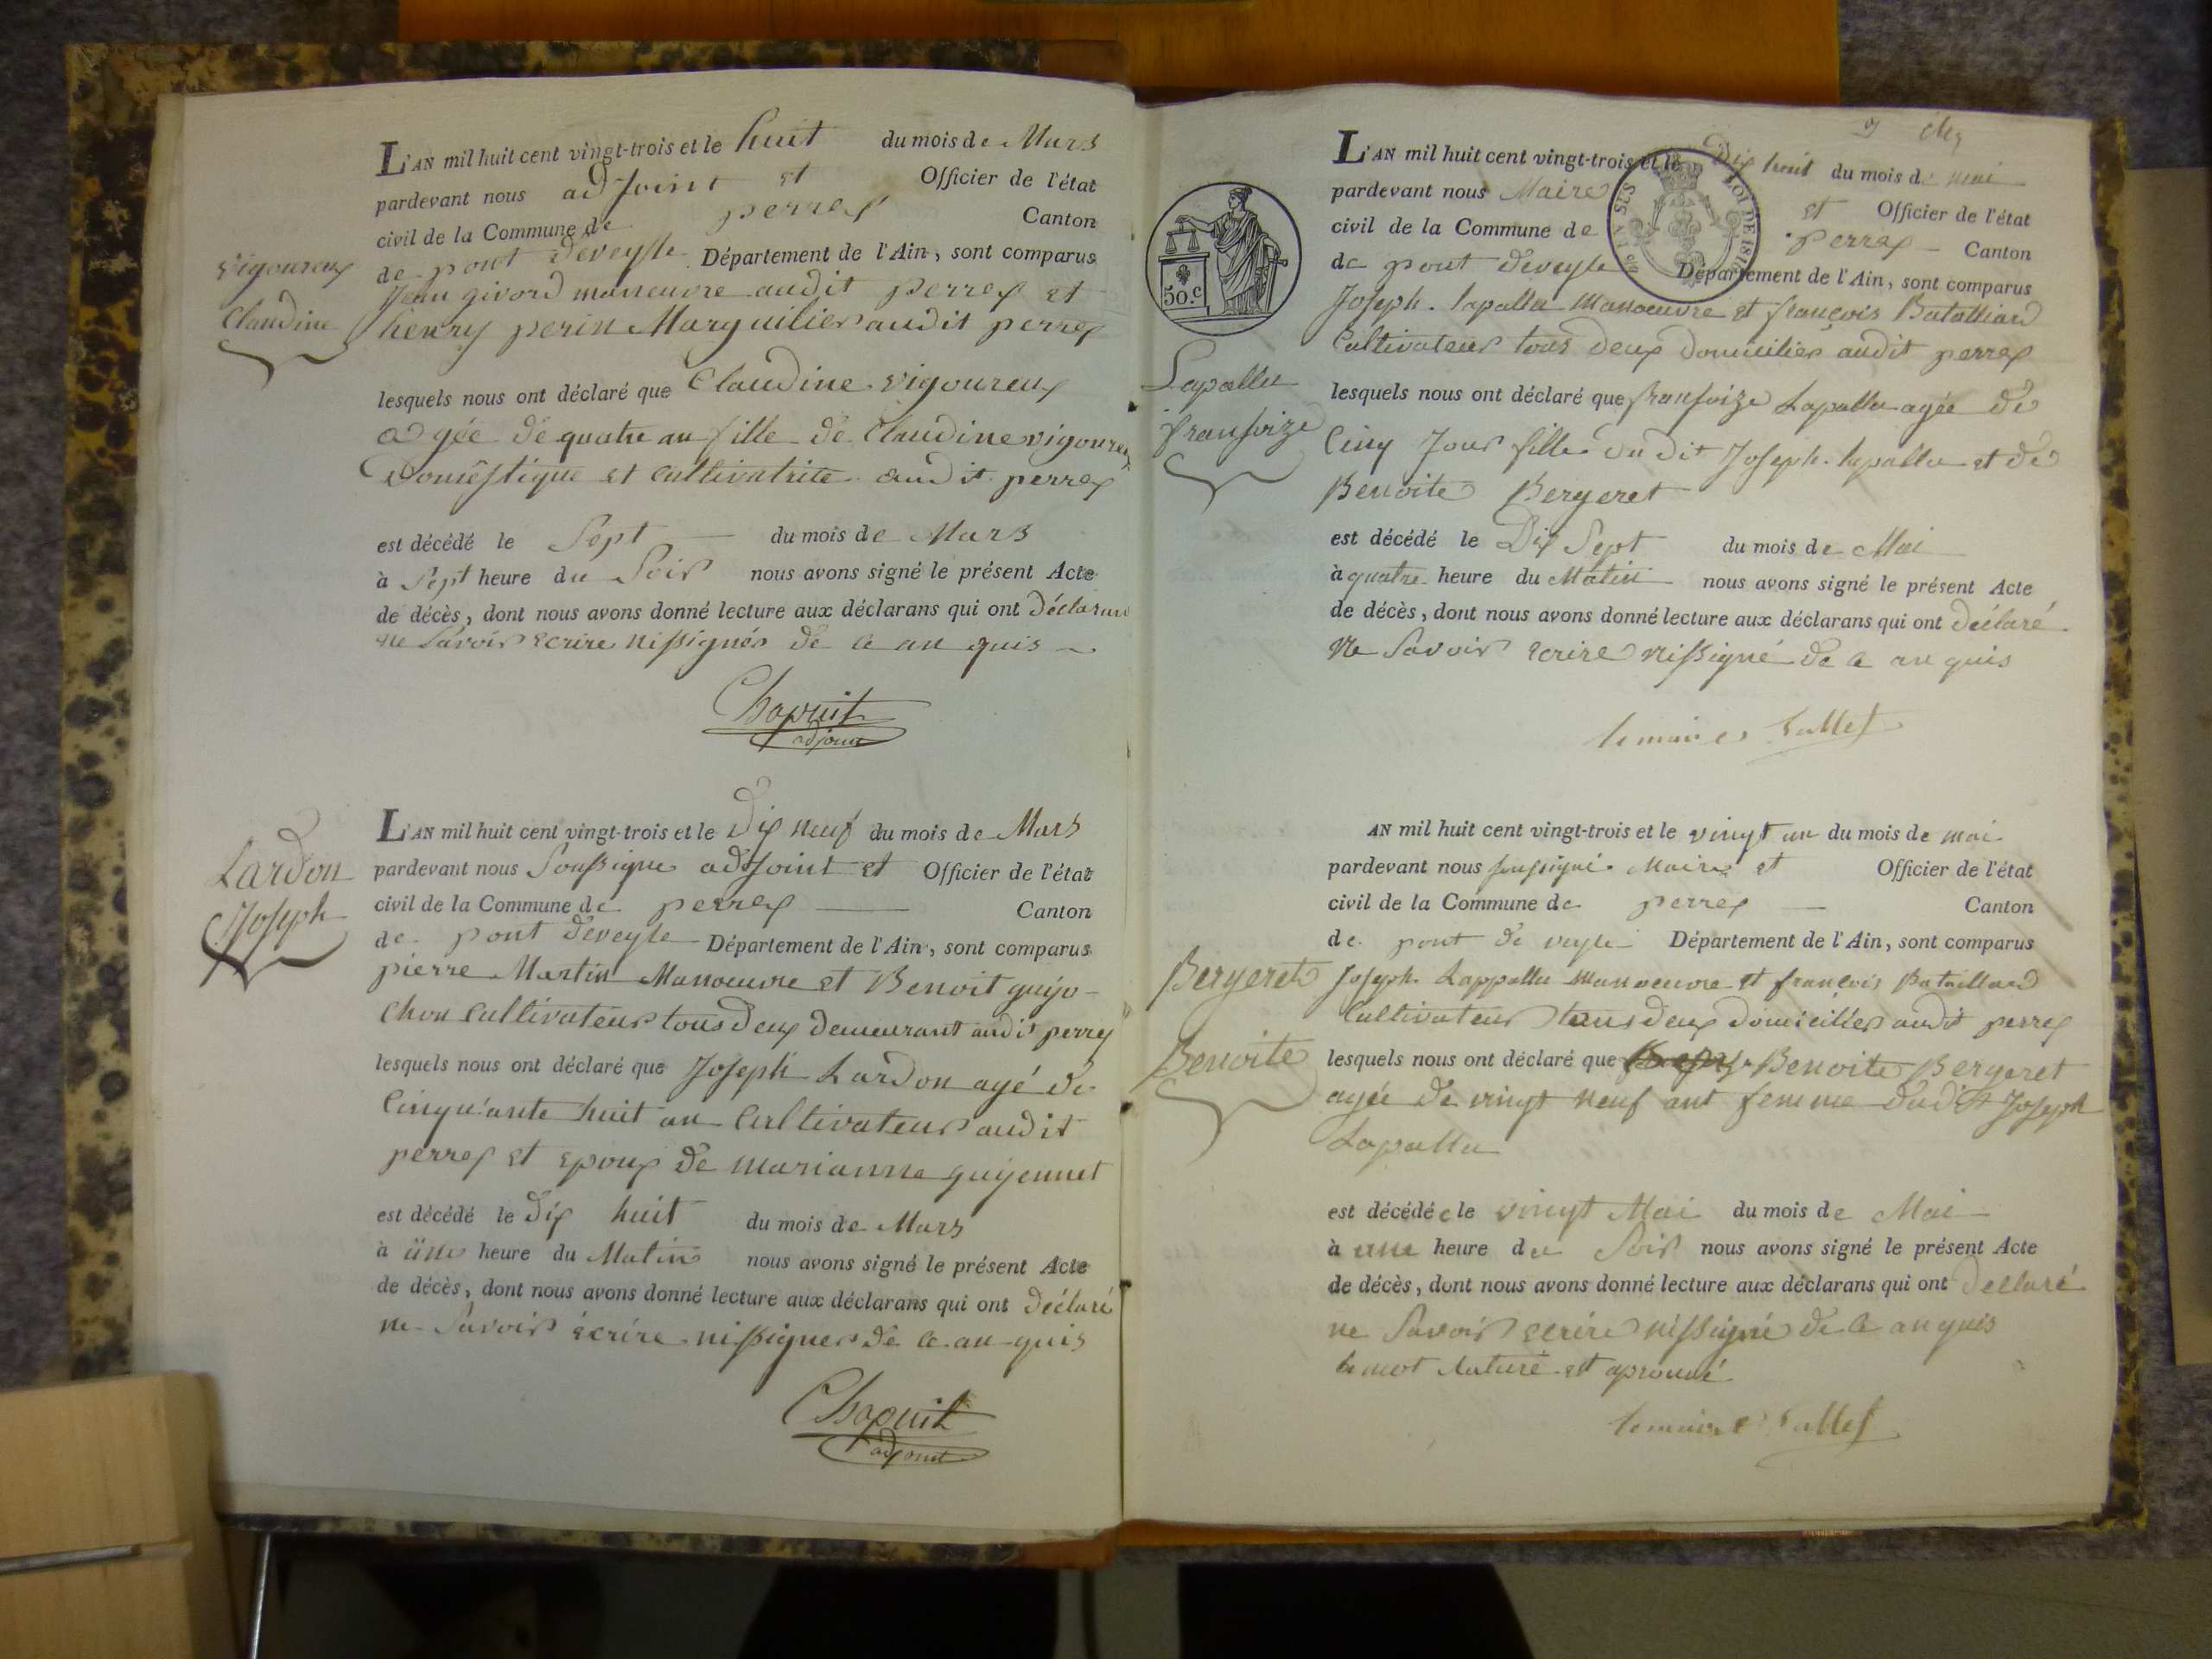 L'AN mil huit cent vingt-trois et le huit du mois de Mars
pardevant nous adjoint et Officier de l'état
civil de la Commune de perrex Canton
de pont deveyle Département de l'Ain, sont comparus
Jean givord maneuvre audit perrex et
henry perin Marguilier audit perrex
Vigoureux
Claudine
lesquels nous ont déclaré que Claudine vigoureux
agée de quatre an fille de Claudine vigoureux
Domestique et cultivatrite audit perrex
est décédé le Sept du mois de Mars
à Sept heure du Soir nous avons signé le présent Acte
de décès, dont nous avons donné lecture aux déclarans qui ont
ne Savoir ecrire nissigner de ce an quis
Chapuit
adjoint
L'AN mil huit cent vingt-trois et le Dix neuf du mois de Mars
Lardon
Joseph
pardevant nous Soussigne adjoint et Officier de l'état
civil de la Commune de perrex Canton
de pont deveyle Département de l'Ain, sont comparus
pierre Martin Manoeuvre et Benoit guyo-
chon Cultivateur tous deux demeurant audit perrex
lesquels nous ont déclaré que Joseph Lardon agé de
Cinquante huit an Cultivateur audit
perrex et epoux de marianne guyennet
est décédé le dix huit du mois de Mars
à üne heure du Matin nous avons signé le présent Acte
de décès, dont nous avons donné lecture aux déclarans qui ont déclaré
ne Savoir écrire nissigner de ce an quis
Chapuit
adjoint
L'AN mil huit cent vingt-trois et le Dix huit du mois de mai
pardevant nous Maire et Officier de l'état
civil de la Commune de perrex Canton
de pont deveyle Département de l'Ain, sont comparus
LOI DE 1816
50.c
Joseph lapallu Manoeuvre et françois Batalliard
Cultivateur tous deux domicilier audit perrex
Lapallu
fransoize
lesquels nous ont déclaré que fransoize Lapallu agée de
Cinq Jour fille du dit Joseph lapallu et de
Benoite Bergeret
est décédé le Dix Sept du mois de Mai
à quatre heure du Matin nous avons signé le présent Acte
de décès, dont nous avons donné lecture aux déclarans qui ont déclaré
ne Savoir ecrire nissigné de ce an quis
le maire
AN mil huit cent vingt-trois et le vingt un du mois de mai
pardevant nous soussigné Maire et Officier de l'état
civil de la Commune de perrex Canton
de pont de veyle Département de l'Ain, sont comparus
Bergeret
Benoite
Joseph Lappallu manoeuvre et françois Bataillard
Cultivateur tous deux domicilier audit perrex
lesquels nous ont déclaré que Benoite Bergeret
agée de vingt neuf ant femme dudit Joseph
Lapallu
est décédée le vingt Mai du mois de Mai
à une heure du Soir nous avons signé le présent Acte
de décès, dont nous avons donné lecture aux déclarans qui ont declaré
ne Savoir ecrire nissigné de ce an quis
le mot raturé est aprouvé
le maire